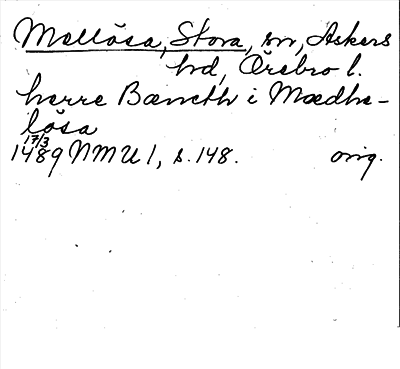 Mellösa, Stora, sn, Askers
hd, Örebro l.
herre Bæncth i Mædhe-
lösa
17/3
1489 NMU 1, s. 148. orig.